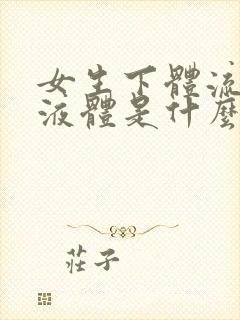 女生下體流
液體是什麼
莊子